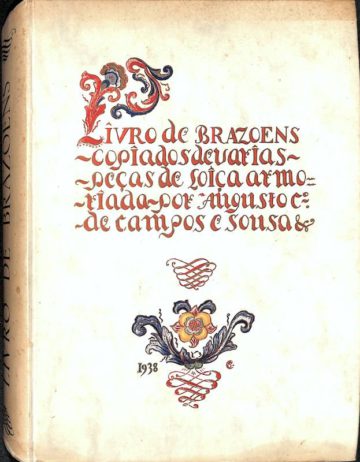 LIVRO DE BRAZOENS
LIVRO de BRAZOENS
~copiados de varias~
~peças de loiça armo=
~riada~por Augusto c.º
~de campos e Sousa &
1938